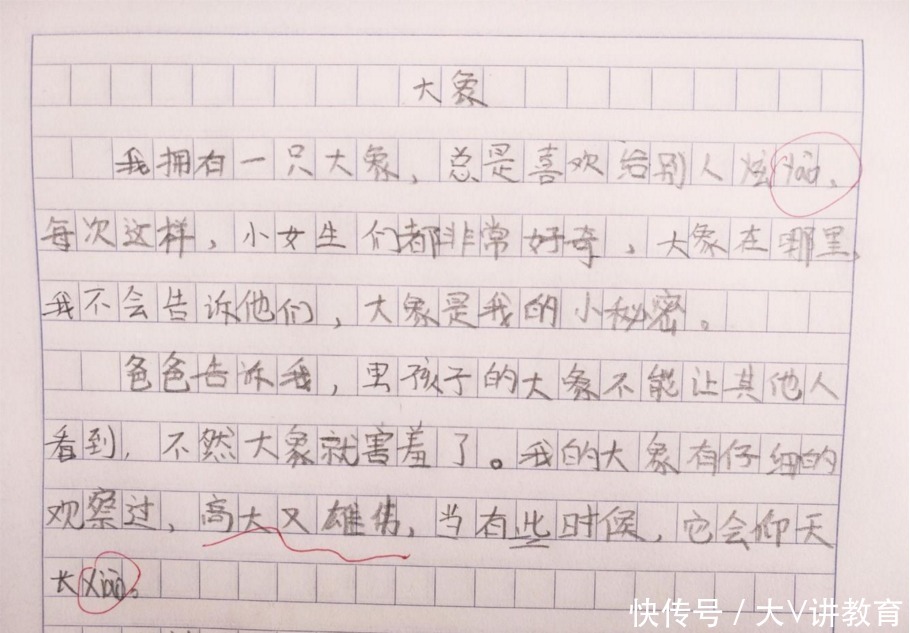 大象
我拥有一只大象，总是喜欢给别人炫yào，
每次这样，小女生们都非常好奇，大象在哪里，
我不会告诉他们，大象是我的小秘密。
爸爸告诉我，男孩子的大象不能让其他人
看到，不然大象就害羞了。我的大象有仔细的
观察过，高大又雄伟，当有些时候，它会仰天
长xiào。
快传号 / 大V讲教育